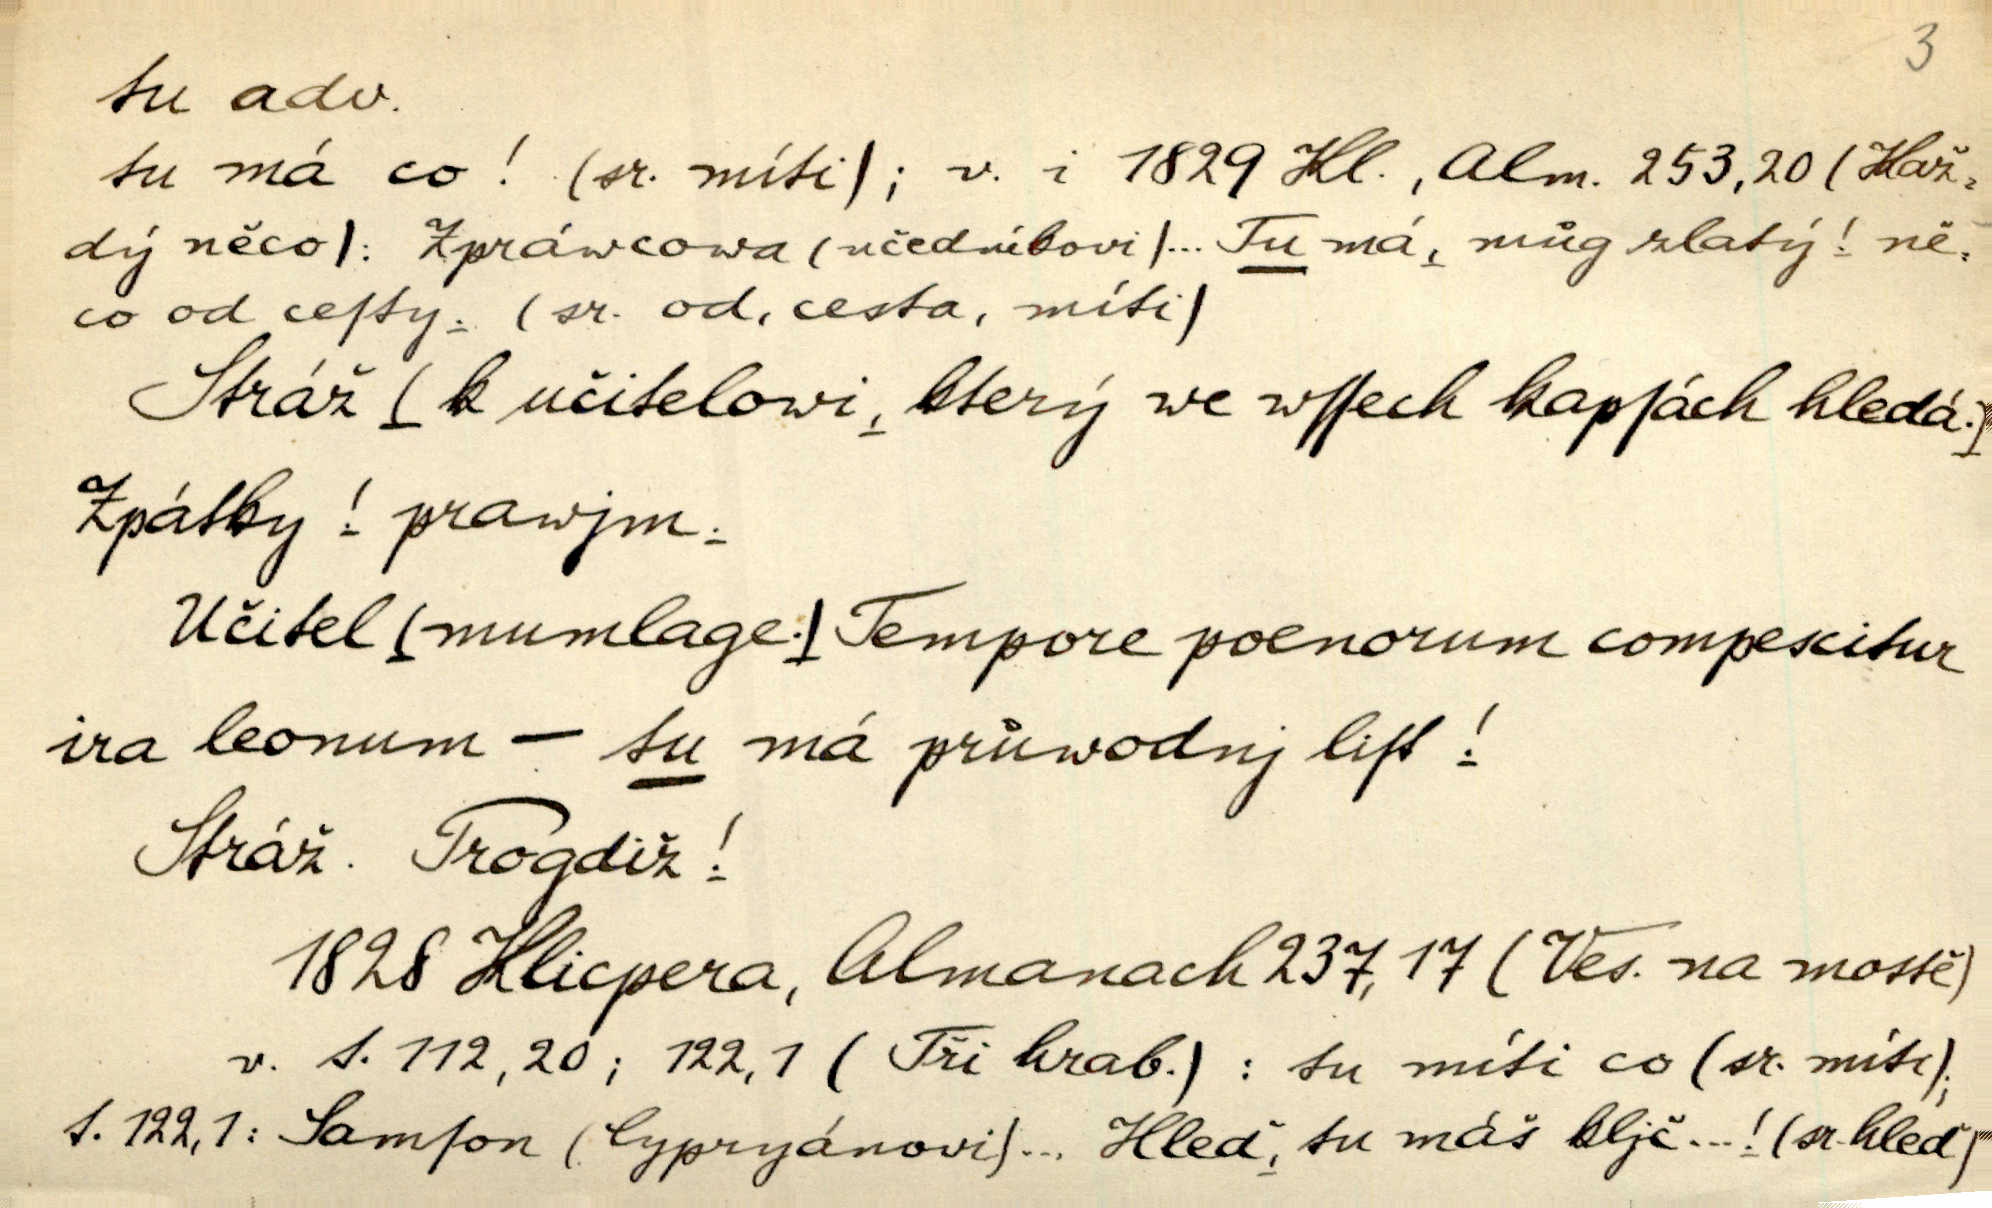 3
tu adv.
tu má co! (sr. míti); v. i 1829 Kl., Alm. 253,20 (Kaž-
dý něco): Zpráwcowa (učedníkovi)... Tu má, můg zlatý! ně-
co od ceſty. (sr. od, cesta, míti)
Stráž (k učitelowi, který we wſſech kapſách hledá.)
Zpátky! prawjm.
Učitel (mumlage.) Tempore poenorum compescitur
ira leonum — tu má průwodnj liſt!
Stráž. Progdiž!
1828 Klicpera, Almanach 237,17 (Ves. na mostě)
v. t. 112,20; 122,1 (Tři hrab.): tu míti co (sr. míti);
t. 122,1: Samſon (Cypryánovi)... Hleď, tu máš kljč...! (sr. hleď)